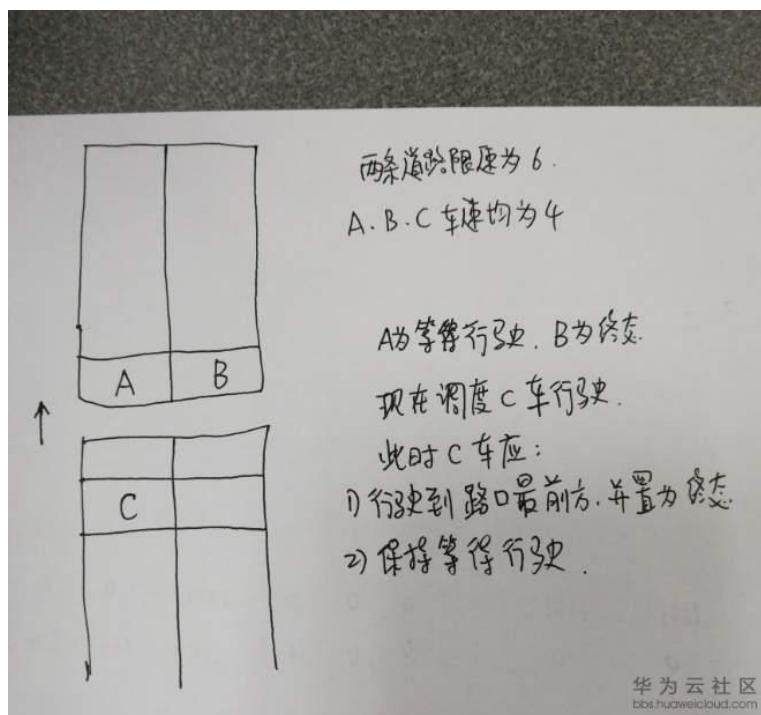 两条道路限速为6.
A.B.C车速均为4
A为等待行驶.B为终态.
现在调度C车行驶.
此时C车应:
1)行驶到路口最前方.并置为终态.
2)保持等待行驶.
A
B
C
华为云社区
bbs.huaweicloud.com